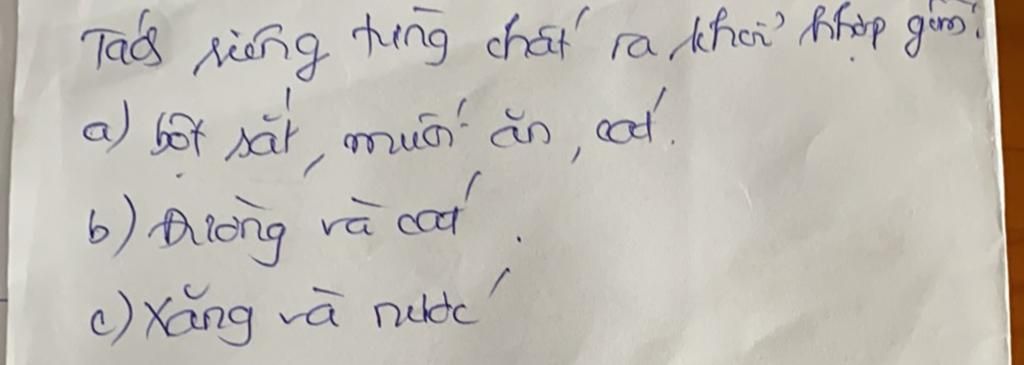 Tách riêng từng chất ra khỏi hhợp gồm:
a) bột sắt, muối ăn, cát.
b) Đường và cát.
c) Xăng và nước